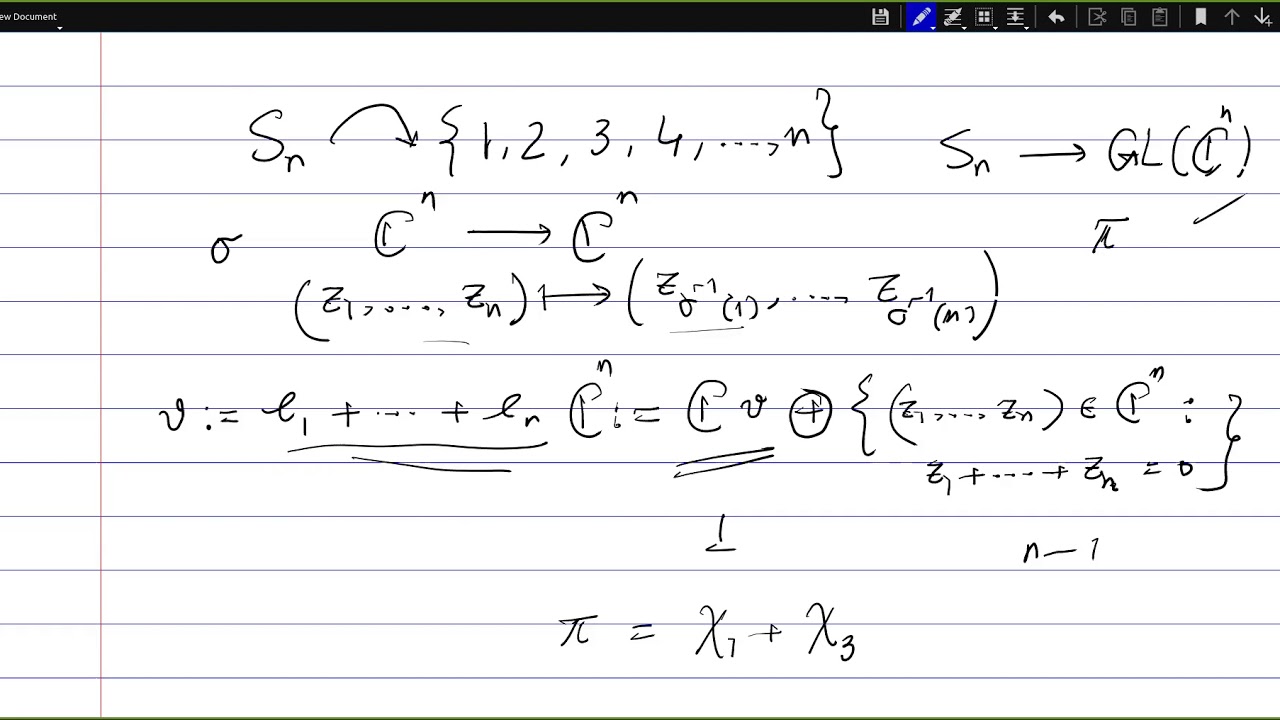 ew Document
Sₙ ↷ {1, 2, 3, 4, ..., n}   Sₙ → GL(ℂⁿ)
σ   ℂⁿ → ℂⁿ   π
(z₁, ..., zₙ) ↦ (z_{σ⁻¹(1)}, ..., z_{σ⁻¹(n)})
v := e₁ + ... + eₙ   ℂⁿ := ℂv ⊕ {(z₁, ..., zₙ) ∈ ℂⁿ :
z₁ + ... + zₙ = 0}
1   n − 1
π = χ₁ + χ₃